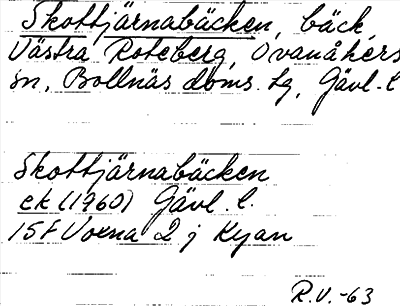 Skottjärnabäcken, bäck,
Västra Roteberg, Ovanåkers
sn, Bollnäs doms. tg, Gävl. l
Skottjärnabäcken
ek (1960) Gävl. l.
15F Voxna 2 j Kyan
R.V.-63